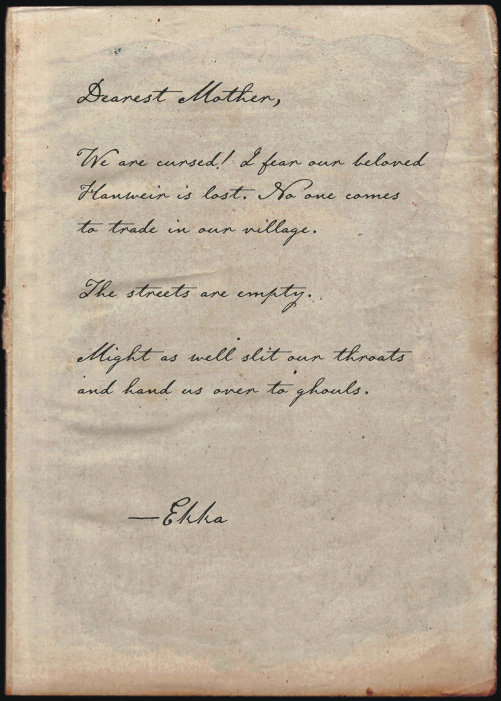 Dearest Mother,
We are cursed! I fear our beloved
Hanweir is lost. No one comes
to trade in our village.
The streets are empty.
Might as well slit our throats
and hand us over to ghouls.
—Ekka